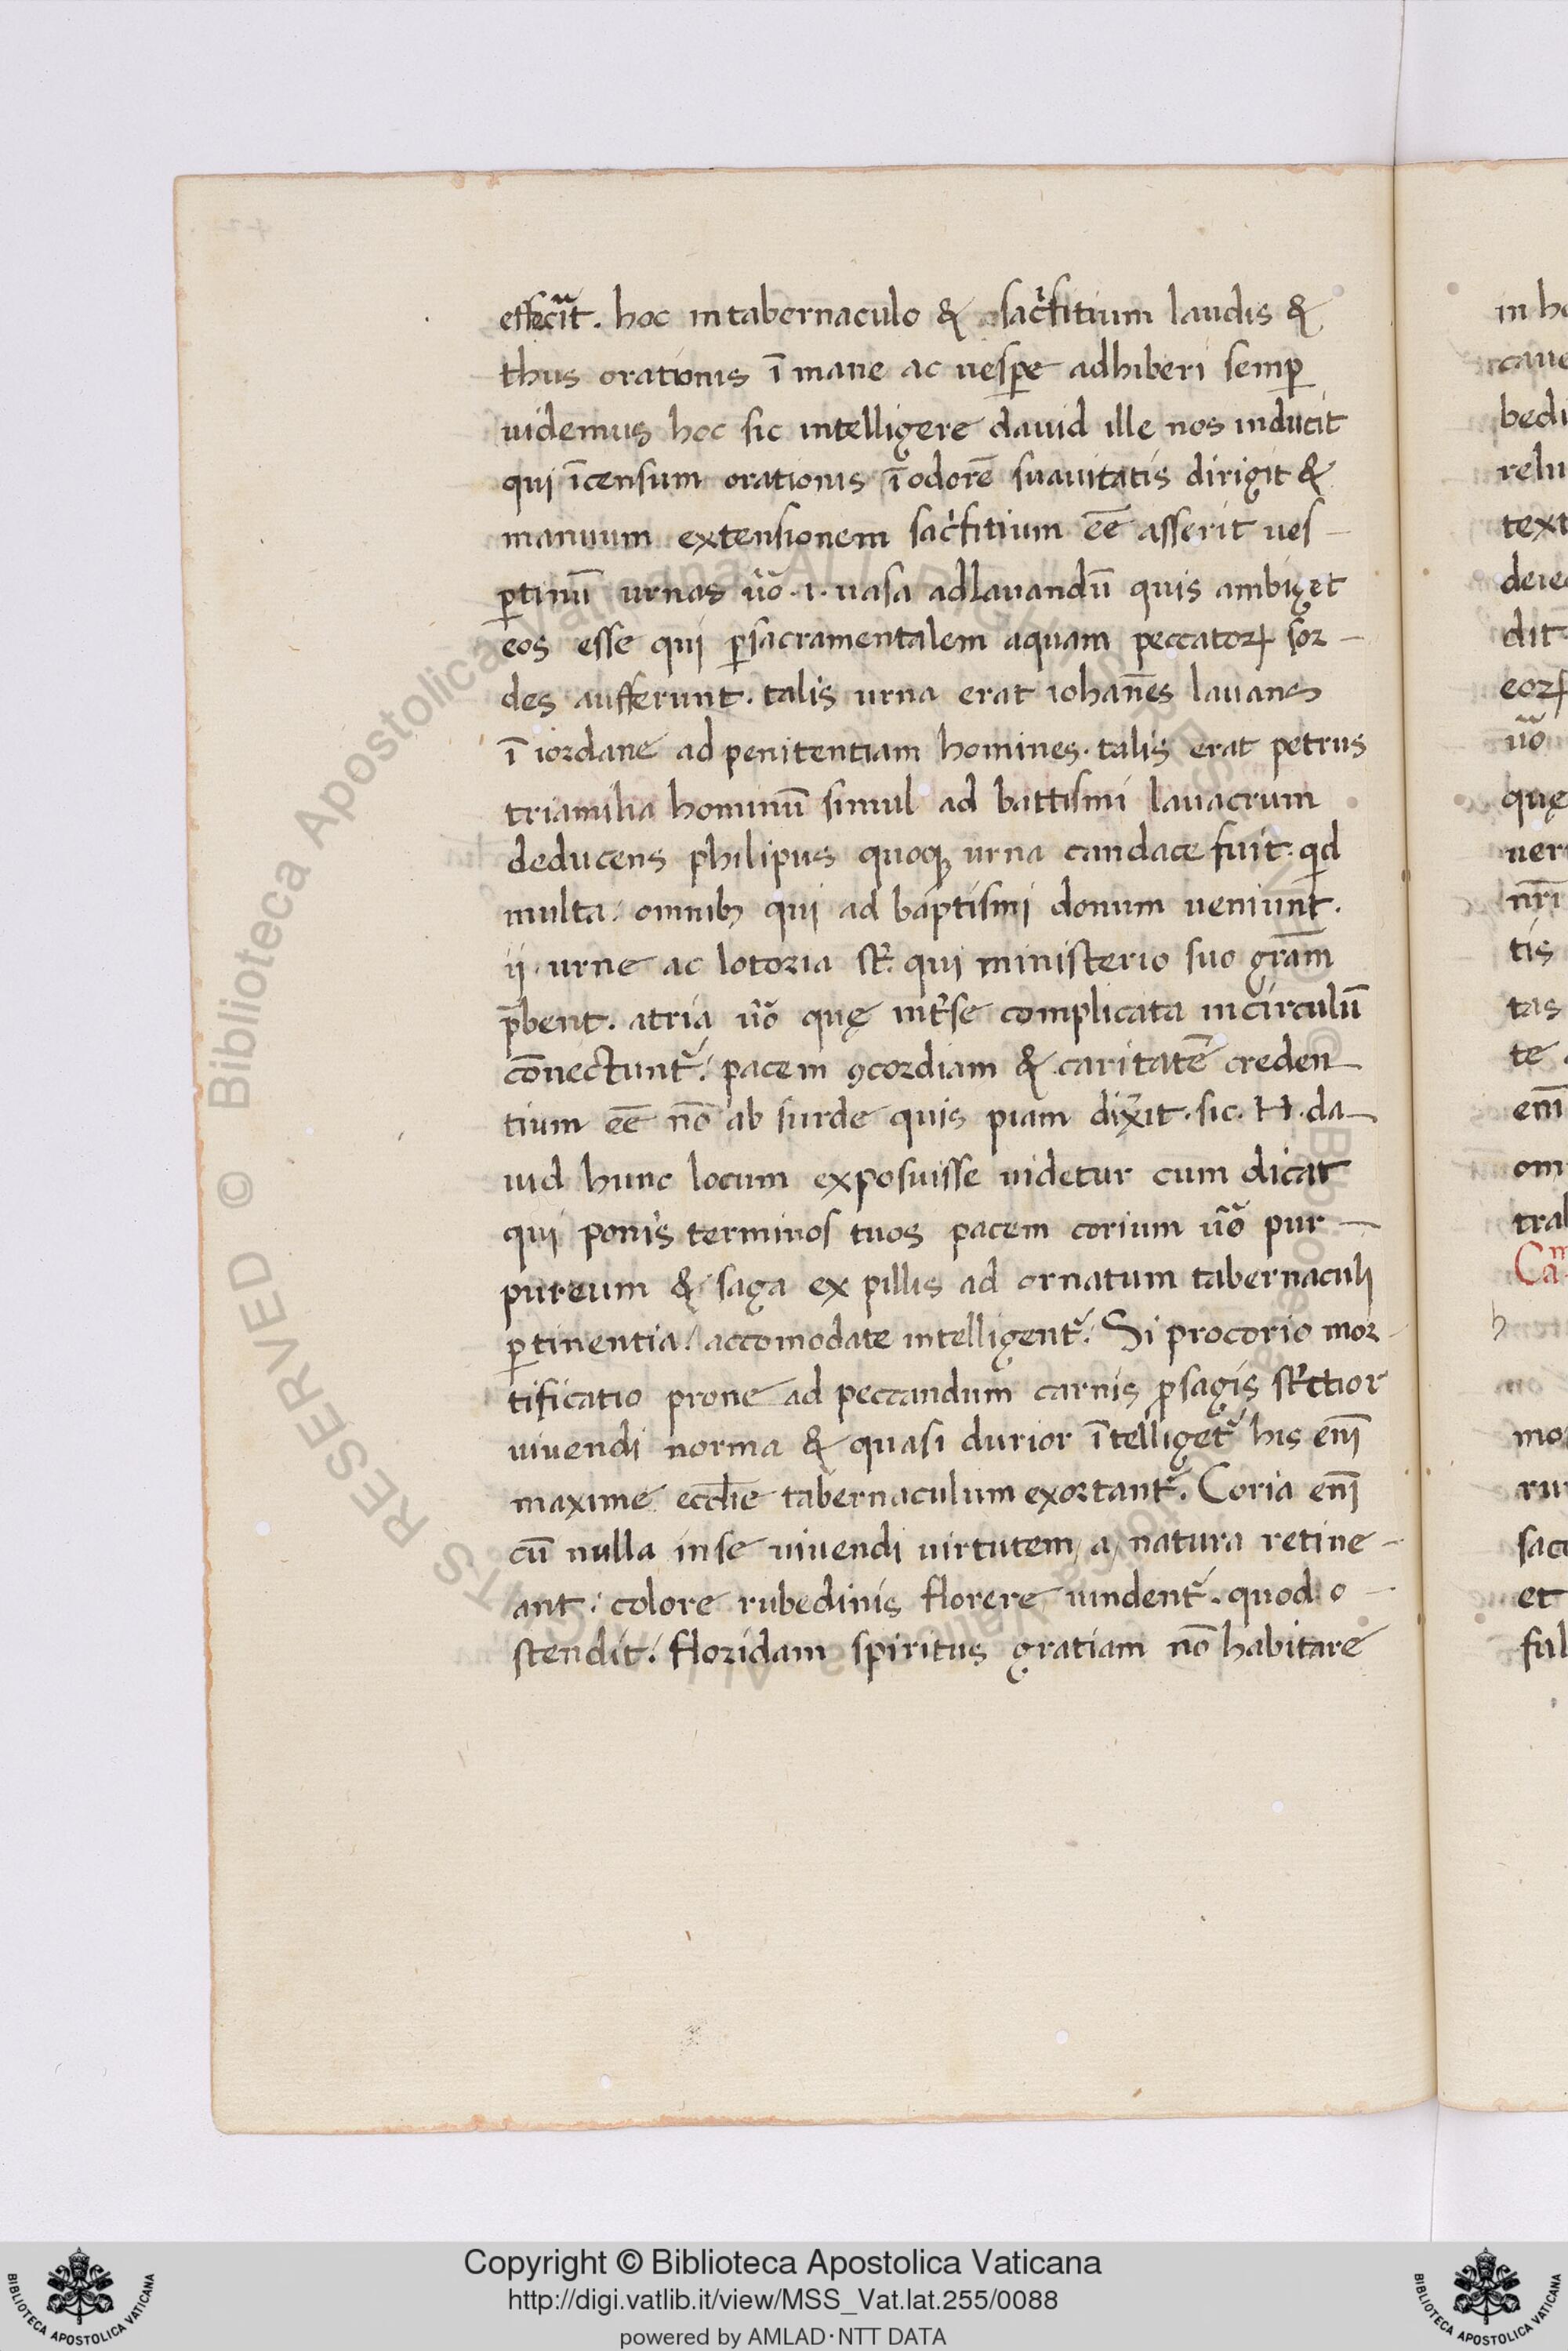 effecit̃. hoc in tabernaculo & sac͛fitium laudis &
thus orationis ī mane ac uesꝑe adhiberi semꝑ
uidemus hoc sic intelligere dauid ille nos inducit
qui īcensum orationis ī odorē suauitatis dirigit &
manuum extensionem sac͛fitium eē asserit ues-
ꝑtinū urnas uo᷈ .i. uasa ad lauandū quis ambiget
eos esse qui ꝑ sacramentalem aquam peccatoꝝ sor-
des aufferunt. talis urna erat iohanēs lauans
ī iordane ad penitentiam homines. talis erat petrus
tria milia hominū simul ad battismi lauacrum
deducens philipus quoqꝫ urna candace fuit. qid
multa. omnibꝫ qui ad baptismi donum ueniunt.
ij. urne ac lotoria st̄. qui ministerio suo gr̄am
p̄bent. atria uo᷈ quę int͛ se complicata in circulū
cōnectunt᷈. pacem ꝯcordiam & caritatē creden-
tium eē nō ab surde quis piam dix͛it. sic. H. da-
uid hunc locum exposuisse uidetur cum dicat
qui ponis terminos tuos pacem corium uo᷈ pur-
pureum & saga ex pillis ad ornatum tabernaculi
ꝑtinentia. accomodate intelligent᷈. Si pro corio mor-
tificatio prone ad peccandum carnis ꝓ sagis st͛ctior
uiuendi norma & quasi durior ītelliget᷈ his enī
maxime eccl̄ie tabernaculum exortant᷈. Coria enī
cū nulla in se uiuendi uirtutem a natura retine-
ant. colore rubedinis florere uindent᷈. quod o-
stendit. floridam spiritus gratiam nō habitare
in h
caue
bedi
relu
text
deie
dit
eoꝝ
uo᷈
quę
uer
nr̄i
tis
tas
te
enī
om
tral
Caᵐ
h
mo
ru
sac
et
ful
Copyright © Biblioteca Apostolica Vaticana
http://digi.vatlib.it/view/MSS_Vat.lat.255/0088
powered by AMLAD·NTT DATA
BIBLIOTECA APOSTOLICA VATICANA
BIBLIOTECA APOSTOLICA VATICANA